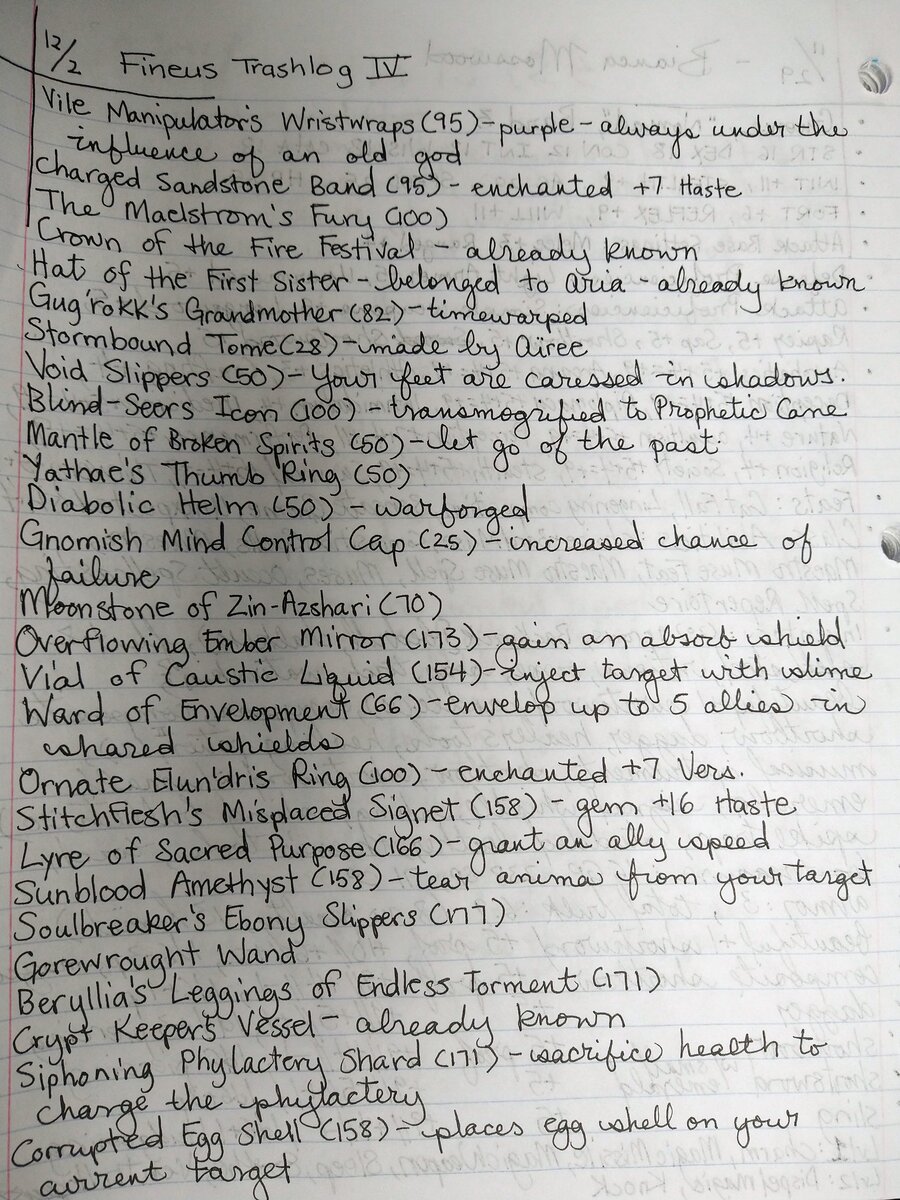 12/2 Fineus Trashlog IV
Vile Manipulator's Wristwraps (95) - purple - always under the
influence of an old god
Charged Sandstone Band (95) - enchanted +7 Haste
The Maelstrom's Fury (100)
Crown of the Fire Festival - already known
Hat of the First Sister - belonged to Aria - already known
Gug'rokk's Grandmother (82) - timewarped
Stormbound Tome (28) - made by Airee
Void Slippers (50) - Your feet are caressed in shadows.
Blind-Seers Icon (100) - transmogrified to Prophetic Cane
Mantle of Broken Spirits (50) - let go of the past.
Yathae's Thumb Ring (50)
Diabolic Helm (50) - warforged
Gnomish Mind Control Cap (25) - increased chance of
failure
Moonstone of Zin-Azshari (70)
Overflowing Ember Mirror (173) - gain an absorb shield
Vial of Caustic Liquid (154) - inject target with slime
Ward of Envelopment (66) - envelop up to 5 allies in
shared shields
Ornate Elun'dris Ring (100) - enchanted +7 Vers.
Stitchflesh's Misplaced Signet (158) - gem +16 Haste
Lyre of Sacred Purpose (166) - grant an ally speed
Sunblood Amethyst (158) - tear anima from your target
Soulbreaker's Ebony Slippers (177)
Gorewrought Wand
Beryllia's Leggings of Endless Torment (171)
Crypt Keeper's Vessel - already known
Siphoning Phylactery Shard (171) - sacrifice health to
charge the phylactery
Corrupted Egg Shell (158) - places egg shell on your
current target